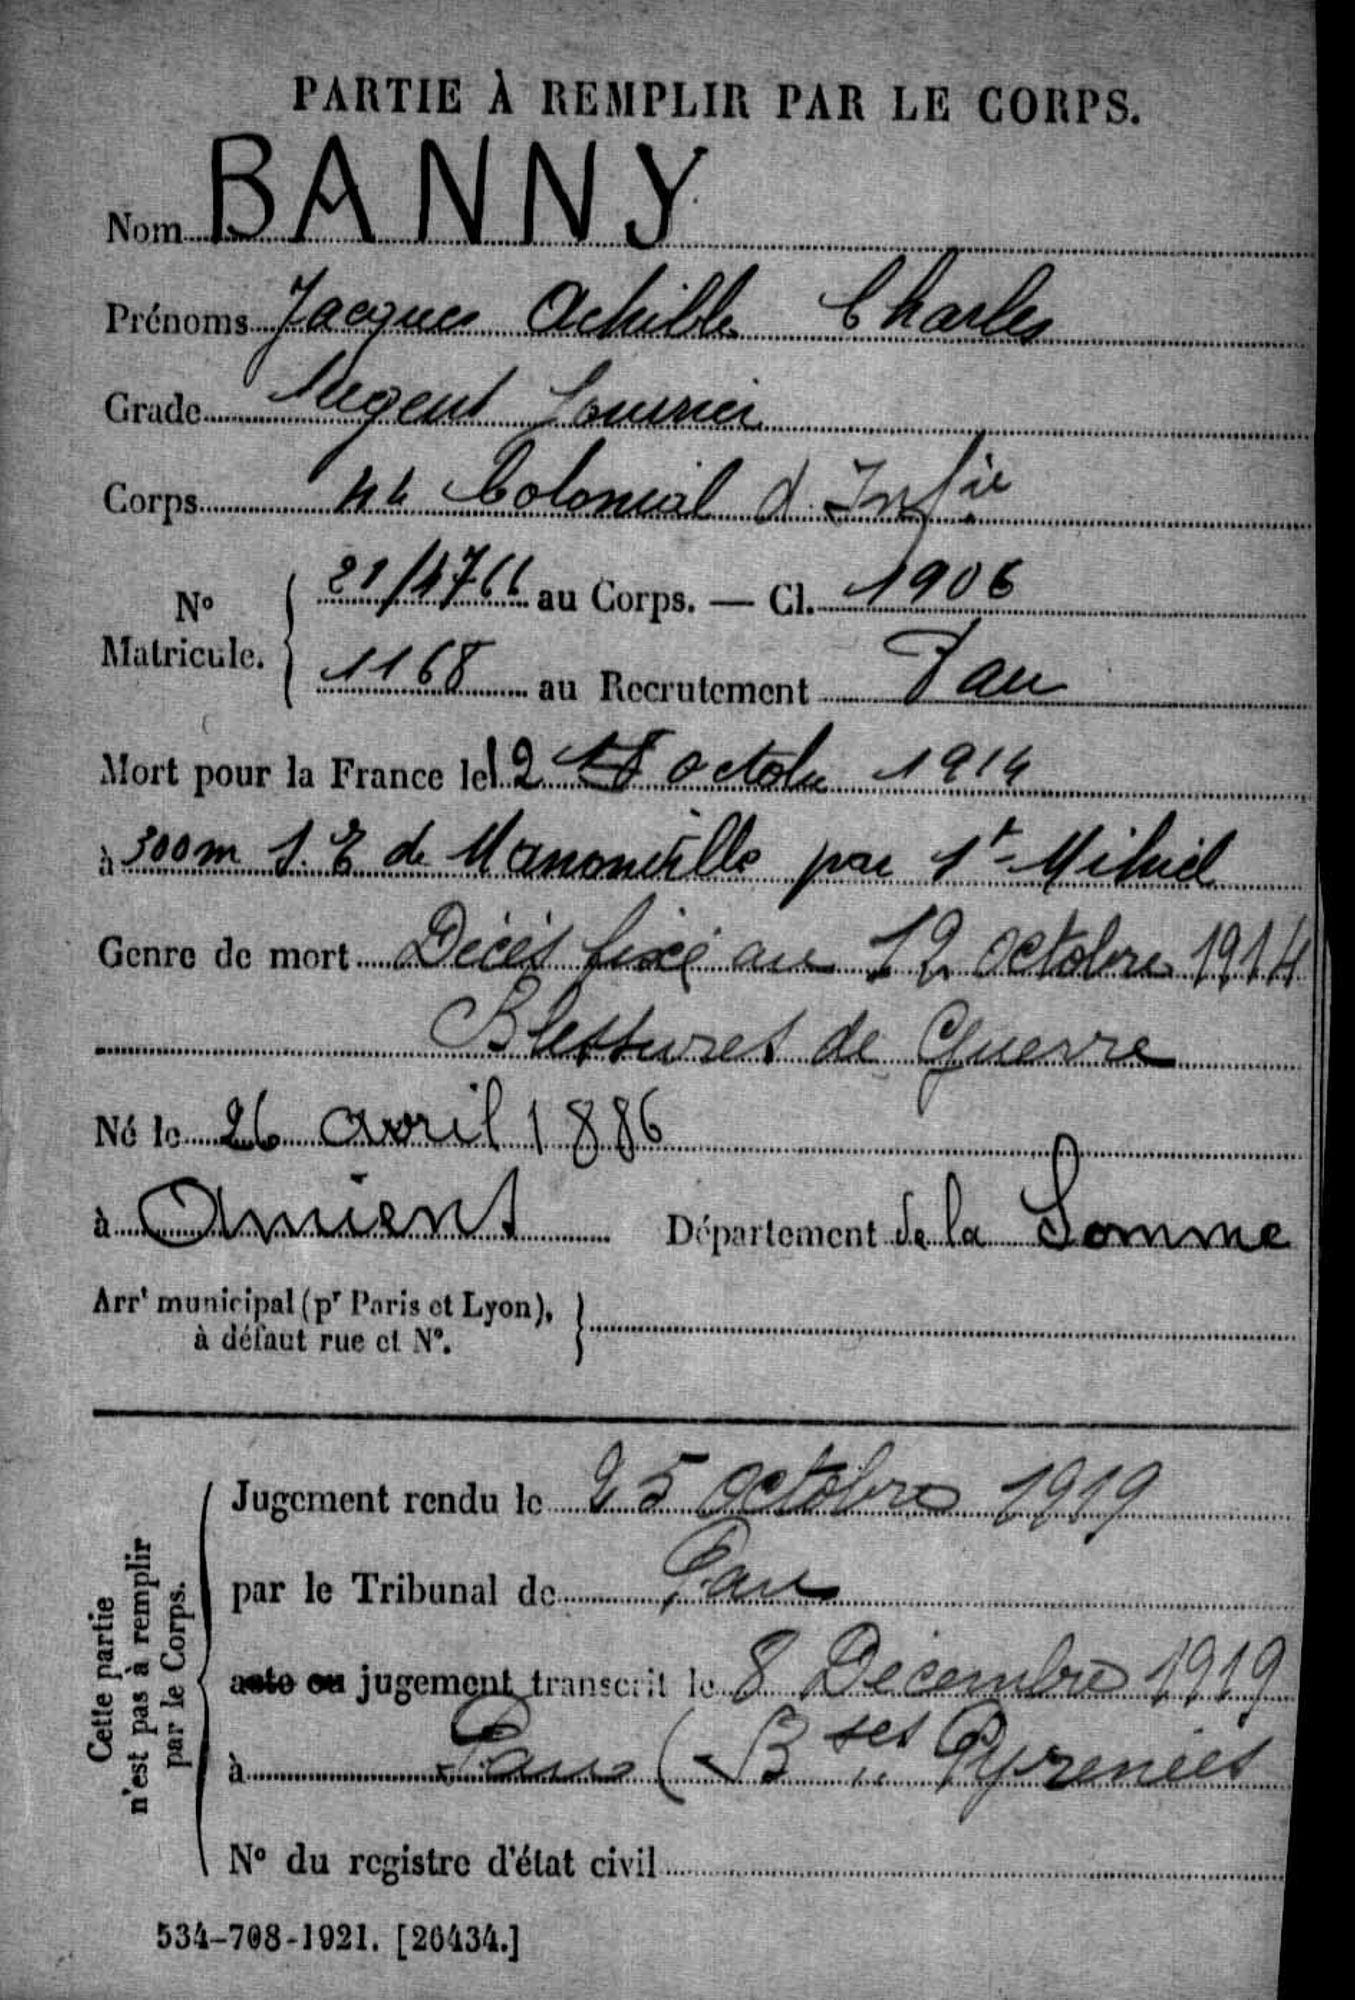 PARTIE À REMPLIR PAR LE CORPS.
Nom BANNY
Prénoms Jacques Achille Charles
Grade Sergent Fourrier
Corps 44 Colonial d'Inf.ie
N° Matricule.
21/4766 au Corps. — Cl. 1906
1168 au Recrutement Pau
Mort pour la France le 12 18 octobre 1914
à 300m S. E de Manonville par St-Mihiel
Genre de mort Décès fixé au 12 octobre 1914
Blessures de Guerre
Né le 26 avril 1886
à Amiens Département de la Somme
Arrt municipal (pr Paris et Lyon),
à défaut rue et N°.
Cette partie
n'est pas à remplir
par le Corps.
Jugement rendu le 25 octobre 1919
par le Tribunal de Pau
acte ou jugement transcrit le 8 Décembre 1919
à Pau (Bses Pyrenées
N° du registre d'état civil
534-708-1921. [26434.]